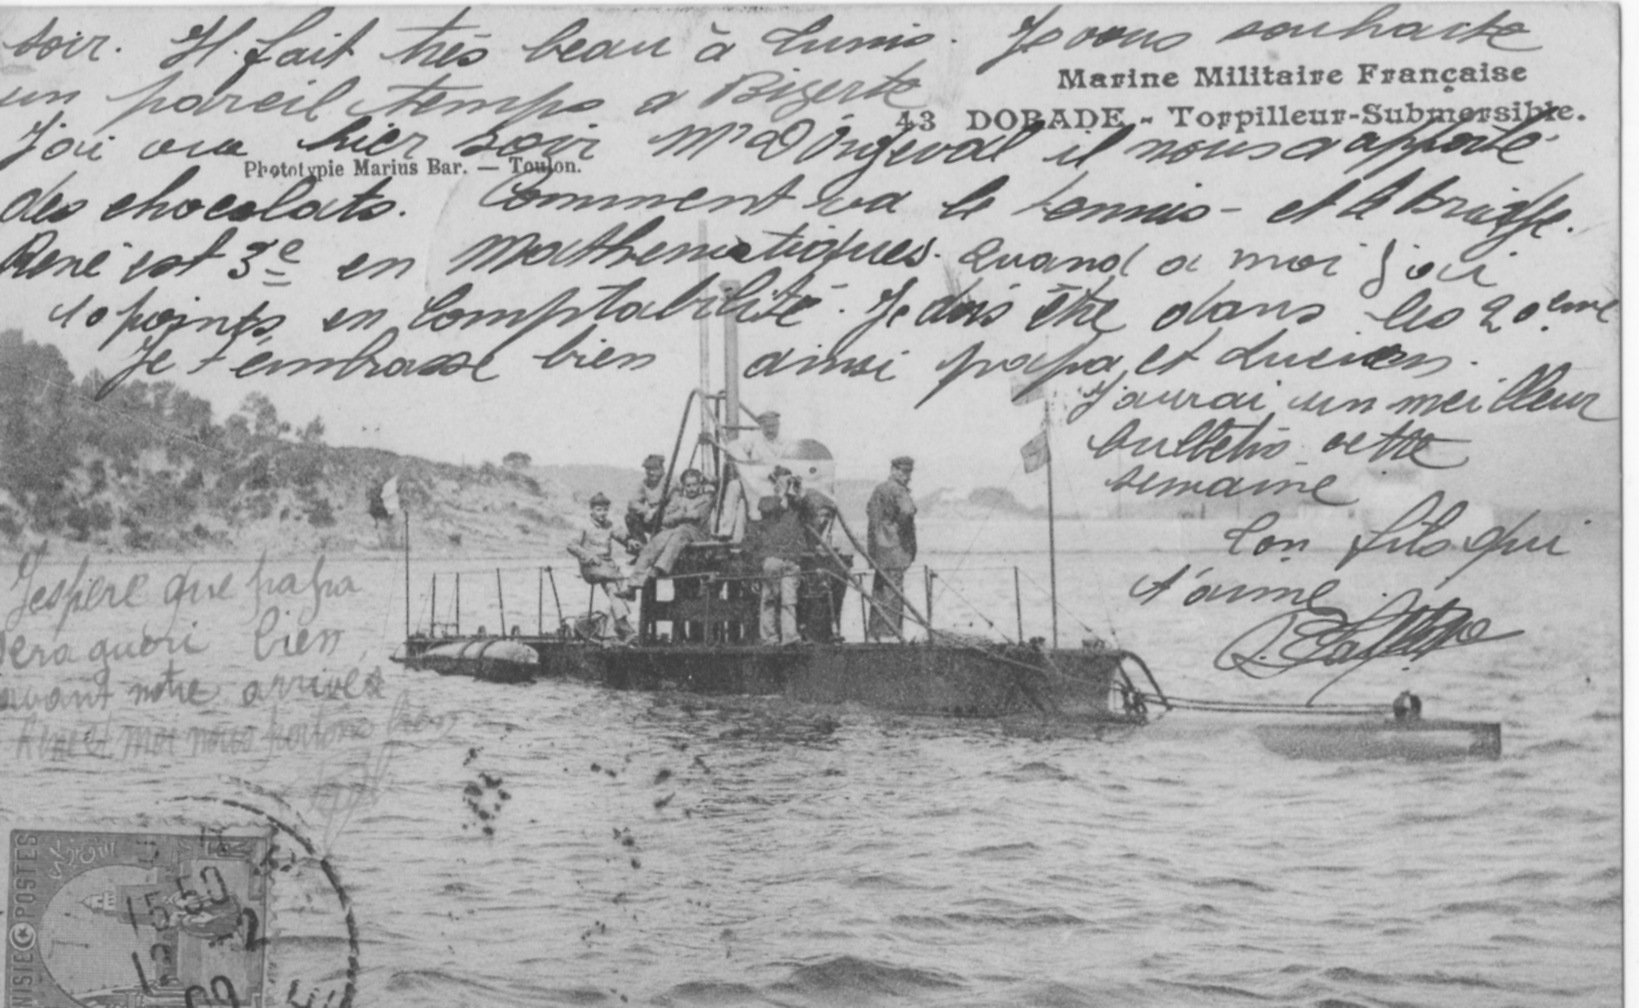 soir. Il fait très beau à Tunis. Je vous souhaite
un pareil temps a Bizerte
Marine Militaire Française
43 DORADE - Torpilleur-Submersible.
J'ai vu hier soir Mr D'Orgeval il nous a apporté
Phototypie Marius Bar. — Toulon.
des chocolats. Comment va le tennis - et le Bridge.
René est 3e en Mathematiques. Quand a moi j'ai
10 points en Comptabilité. Je dois être dans les 20eme
Je t'embrasse bien ainsi papa et Lucien.
J'aurai un meilleur
bulletin cette
semaine
Ton fils qui
t'aime
J'espere que papa
sera gueri bien
avant notre arrivée
René et moi nous portons bien
POSTES
15 50